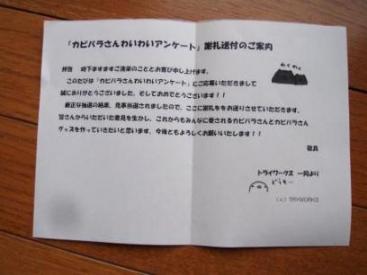 「カピバラさんわいわいアンケート」謝礼送付のご案内
わくわく
拝啓 時下ますますご清栄のこととお喜び申し上げます。
このたびは「カピバラさんわいわいアンケート」にご応募いただきまして
誠にありがとうございました。そしておめでとうございます!!
厳正な抽選の結果、見事当選されましたので、ここに謝礼をお送りさせていただきます。
皆さんからいただいた意見を生かし、これからもみんなに愛されるカピバラさんとカピバラさん
グッズを作っていきたいと思います。今後ともよろしくお願いいたします!!
敬具
トライワークス 一同より
どうもー
(c) TRYWORKS